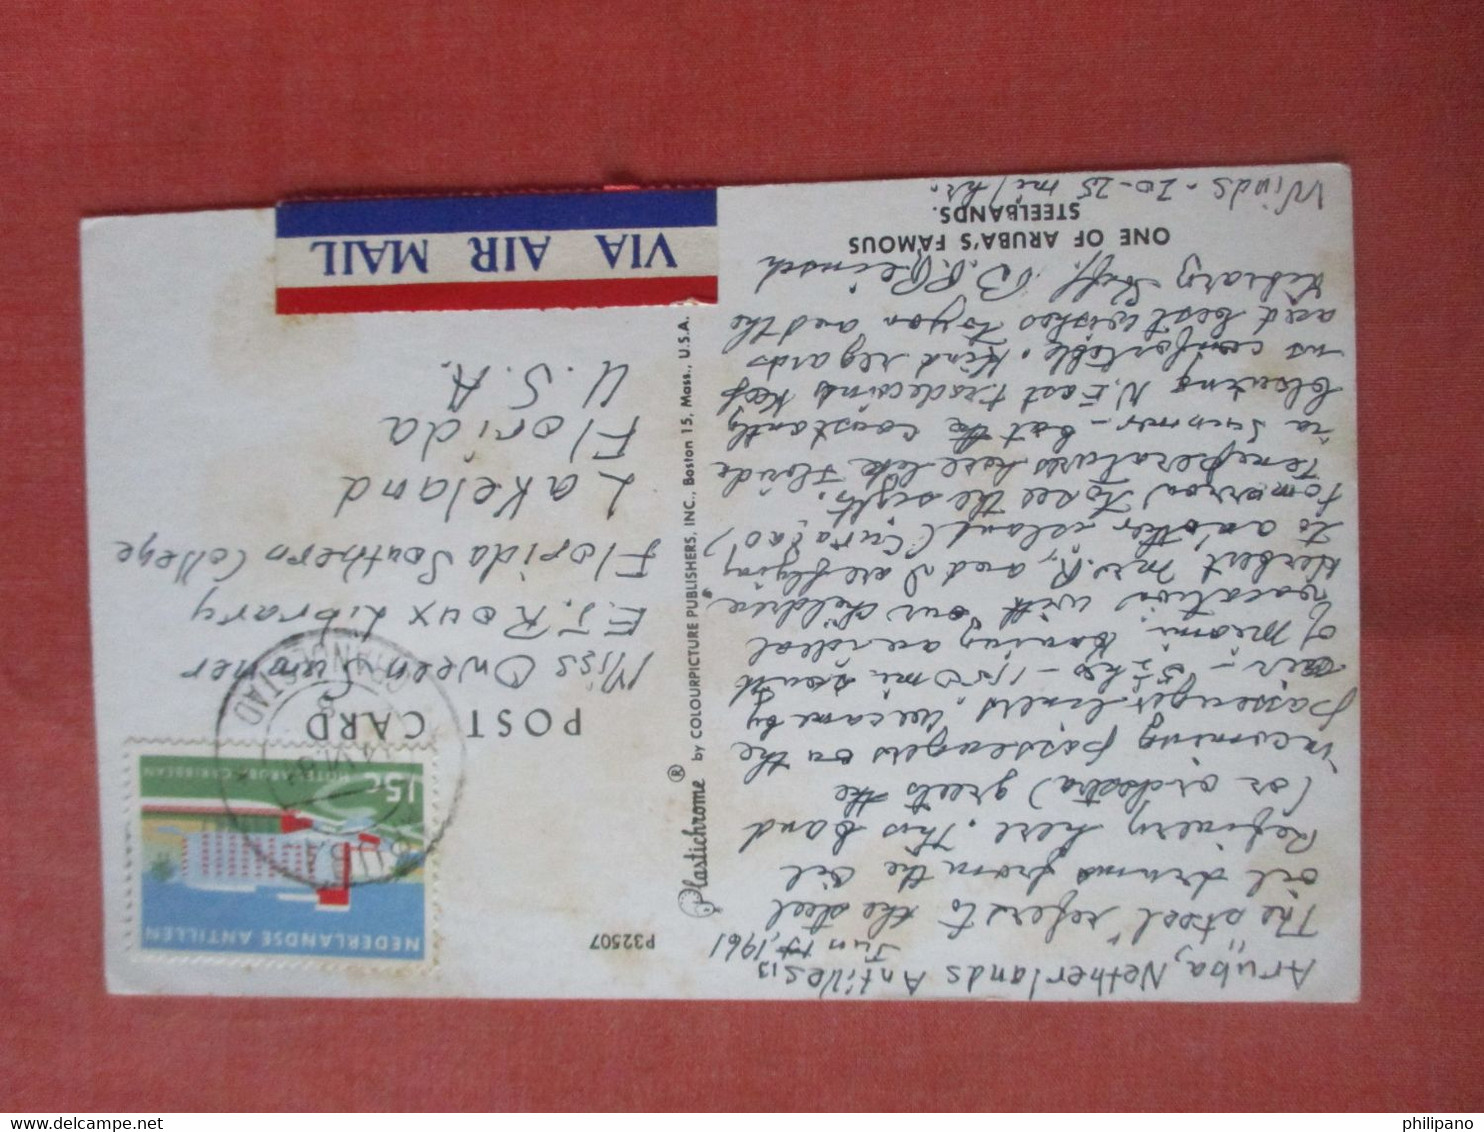 Aruba, Netherlands Antilles
Jun 13, 1961
The "steel" refers to the steel
oil drums from the oil
Refinery here. This band
(or orchestra) greets the
incoming passengers on the
passenger liners. We came by
air - 5½ hrs - 1,150 mi south
of Miami. Having an ideal
vacation with our children,
Herbert. Mrs. R., and I are flying
to another island (Curaçao)
tomorrow to see the sights.
Temperatures here like Florida
in summer - but the constantly
blowing N. East tradewinds keep
us comfortable. Kind regards
and best wishes to you and the
Library Staff. B. P. Reinsch
ONE OF ARUBA'S FAMOUS
STEELBANDS.
Winds - 20-25 mi/hr.
P32507
Plastichrome® by COLOURPICTURE PUBLISHERS, INC., Boston 15, Mass., U.S.A.
NEDERLANDSE ANTILLEN
15c
HOTEL ARUBA CARIBBEAN
ARUBA
ORANJESTAD
POST CARD
Miss Oween Sumner
E.T. Roux Library
Florida Southern College
Lakeland
Florida
U.S.A.
VIA AIR MAIL
philipano